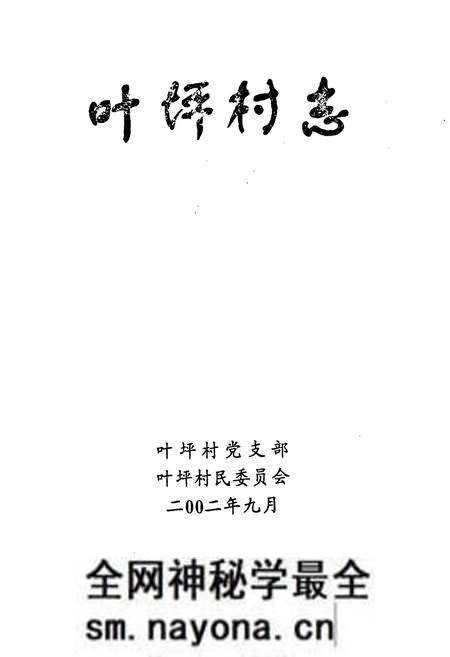 叶坪村志
叶坪村党支部
叶坪村民委员会
二00二年九月
全网神秘学最全
sm.nayona.cn